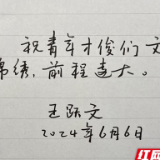 祝青年才俊们文
锦绣，前程远大。
王跃文
2024年6月6日
红